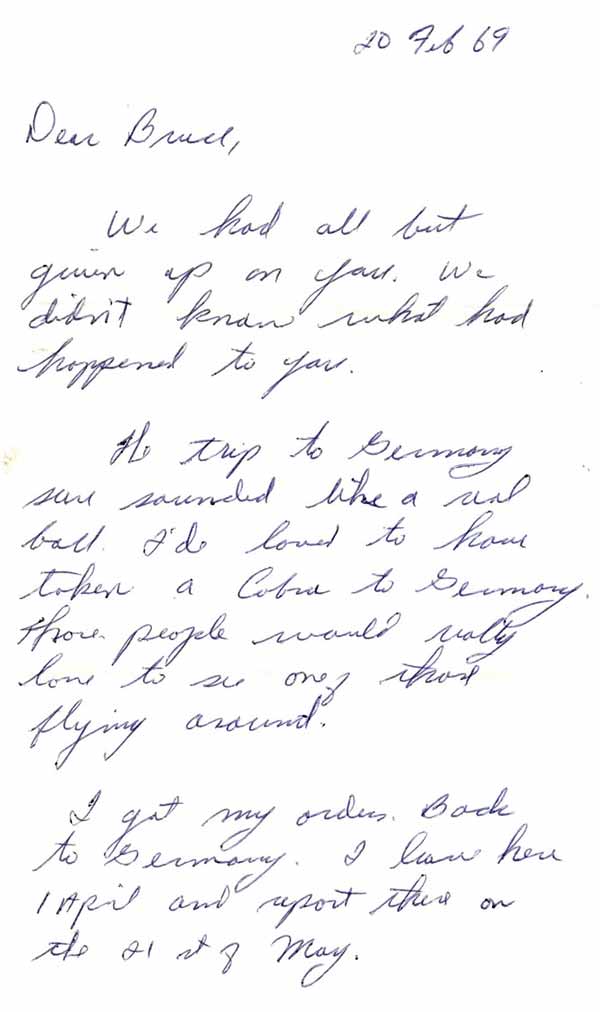 20 Feb 69
Dear Bruce,
We had all but
given up on you. We
didn't know what had
happened to you.
The trip to Germany
sure sounded like a real
ball. I'd loved to have
taken a Cobra to Germany.
Those people would really
love to see one of those
flying around.
I got my orders. Back
to Germany. I leave here
1 April and report there on
the 21 st of May.